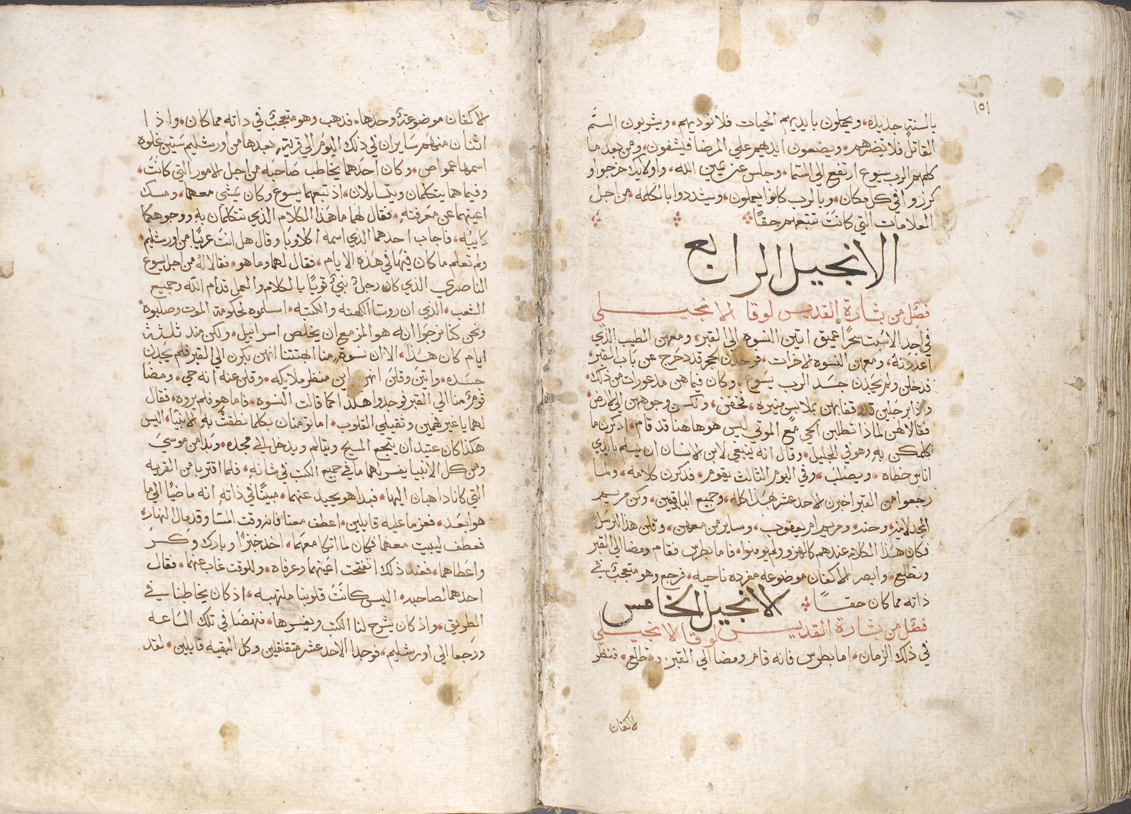 ١٥١
بالسنتها جديده ويحملون بايديهم الحيات فلا توذيهم ويشربون السم
القاتل فلا تضرهم ويضعون ايديهم علي المرضا فيشفون ومن بعد ما
كلمهم الرب يسوع ارتفع الي السما وجلس عن يمين الله واولايك خرجوا و
كرزوا في كل مكان وبالرب كانوا يعملون ويتشددوا بالكلمه من اجل
العلامات التي كانت تتبعهم حقًا
الانجيل الرابع
فصل من بشارة القديس لوقا الانجيلي
في احد السبت بحرًا عميق اتين النسوه الي القبر ومعهن الطيب الذي
اعددنه ومعهن النسوه الاخرات فوجدن الحجر قد خرج عن باب القبر
فدخلن ولم يجدن جسد الرب يسوع وكان فيما هن مدعورات من ذلك
واذا برجلين قد وقفا بهن بملابس منيره فخفن ونكسن وجوههن الي الارض
فقالا لهن لماذا تطلبن الحي مع الموتي ليس هو هاهنا قد قام اذكرن ما
كلمكن به وهو في الجليل وقال انه ينبغي لابن الانسان ان يسلم بايدي
اناس خطاه ويصلب وفي اليوم الثالث يقوم فذكرن كلامه ولما
رجعوا من القبر اخبرن الاحد عشر هذا كله وجميع الباقين وكن مريم
المجدلانيه وحنه ومريم ام يعقوب وساير من معهن وقلن هذا للرسل
فكان هذا الكلام عندهم كالهزو ولم يومنوا فاما بطرس فقام ومضا الي القبر
وتطلع وابصر الاكفان موضوعه مفرده ناحيه فرجع وهو متعجب في
ذاته مما كان حقًا
الانجيل الخامس
فصل من بشارة القديس لوقا الانجيلي
في ذلك الزمان اما بطرس فانه قام ومضا الي القبر وتطلع فنظر
لاكفان
لاكفان موضوعة وحدها فذهب وهو متعجب في ذاته مما كان واذا
اثنان منهم سايران في ذلك اليوم الي قرية بعدها من اورشليم ستين غلوه
اسمها عمواص وكان احدهما يخاطب صاحبه من اجل الامور التي كانت
وفيما هما يتكلمان ويتسايلان اذ تبعهما يسوع وكان يمشي معهما ومسك
اعينهما عن معرفته فقال لهما ما هذا الكلام الذي تتكلمان به ووجوهكما
كايبه فاجاب احدهما الذي اسمه اكلاوبا وقال هل انت غريبًا من اورشليم
ولم تعلم ما كان فيها في هذه الايام فقال لهما وما هو فقالا له من اجل يسوع
الناصري الذي كان رجل نبي قويًا بالكلام والعمل قدام الله وجميع
الشعب الذي ان روسا الكهنه والكتبه اسلموه لحكومة الموت وصلبوه
ونحن كنا نرجوا انه هو المزمع ان يخلص اسرايل ولكن منذ ثلثة
ايام كان هذا الا ان نسوة منا ابهتتنا انهن بكرن الي القبر فلم يجدن
جسده واتين وقلن انهن راين منظر ملايكه وقلن عنه انه حي ومضا
قوم منا الي القبر فوجدوا هكذا كما قالت النسوه فاما هو فلم يروه فقال
لهما يا غير فهمين وثقيلي القلوب اما تومنان بكلما نطقت به الانبيا اليس
هكذا كان عتيدًا ان يتجع المسيح ويتالم ويدخل الي مجده وبدا من موسي
ومن كل الانبيا يفسر لهما ما في جميع الكتب في شانه فلما اقتربا من القريه
التي كانا ذاهبان اليها فبدا هو يحيد عنهما مبينًا في ذاته انه ماضيًا الي ما
هو ابعد فعزما عليه قايلين اعطف معنا فانه وقت المسا وقد مال النهار
فعطف ليبيت معهما فكان لما اتكا معهما اخد خبزًا وبارك وكسر
واعطاهما فعند ذلك انفتحت اعينهما وعرفاه وللوقت غاب عنهما فقال
احدهما لصاحبه اليس كانت قلوبنا ملتهبه اذ كان يخاطبنا في
الطريق واذ كان يشرح لنا الكتب ويفسرها فنهضا في تلك الساعه
ورجعا الي اورشليم فوجدا الاحد عشر متقلقين وكل البقيه قايلين لقد